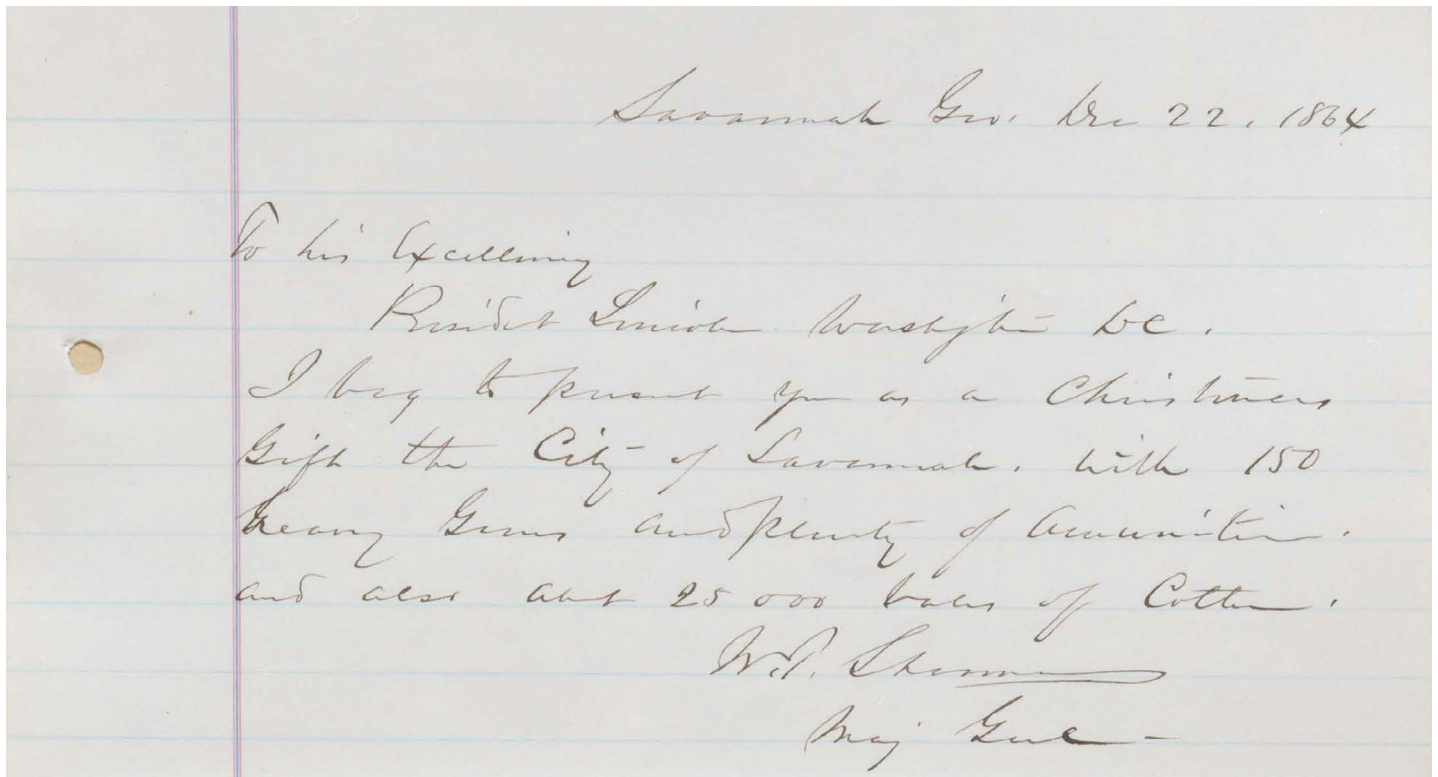 Savannah Geo. Dec 22, 1864
To his Excellency
President Lincoln Washington D.C.
I beg to present you as a Christmas
Gift the City of Savannah. with 150
heavy Guns and plenty of Ammunition.
and also about 25 000 bales of Cotton.
W.T. Sherman
Maj Genl